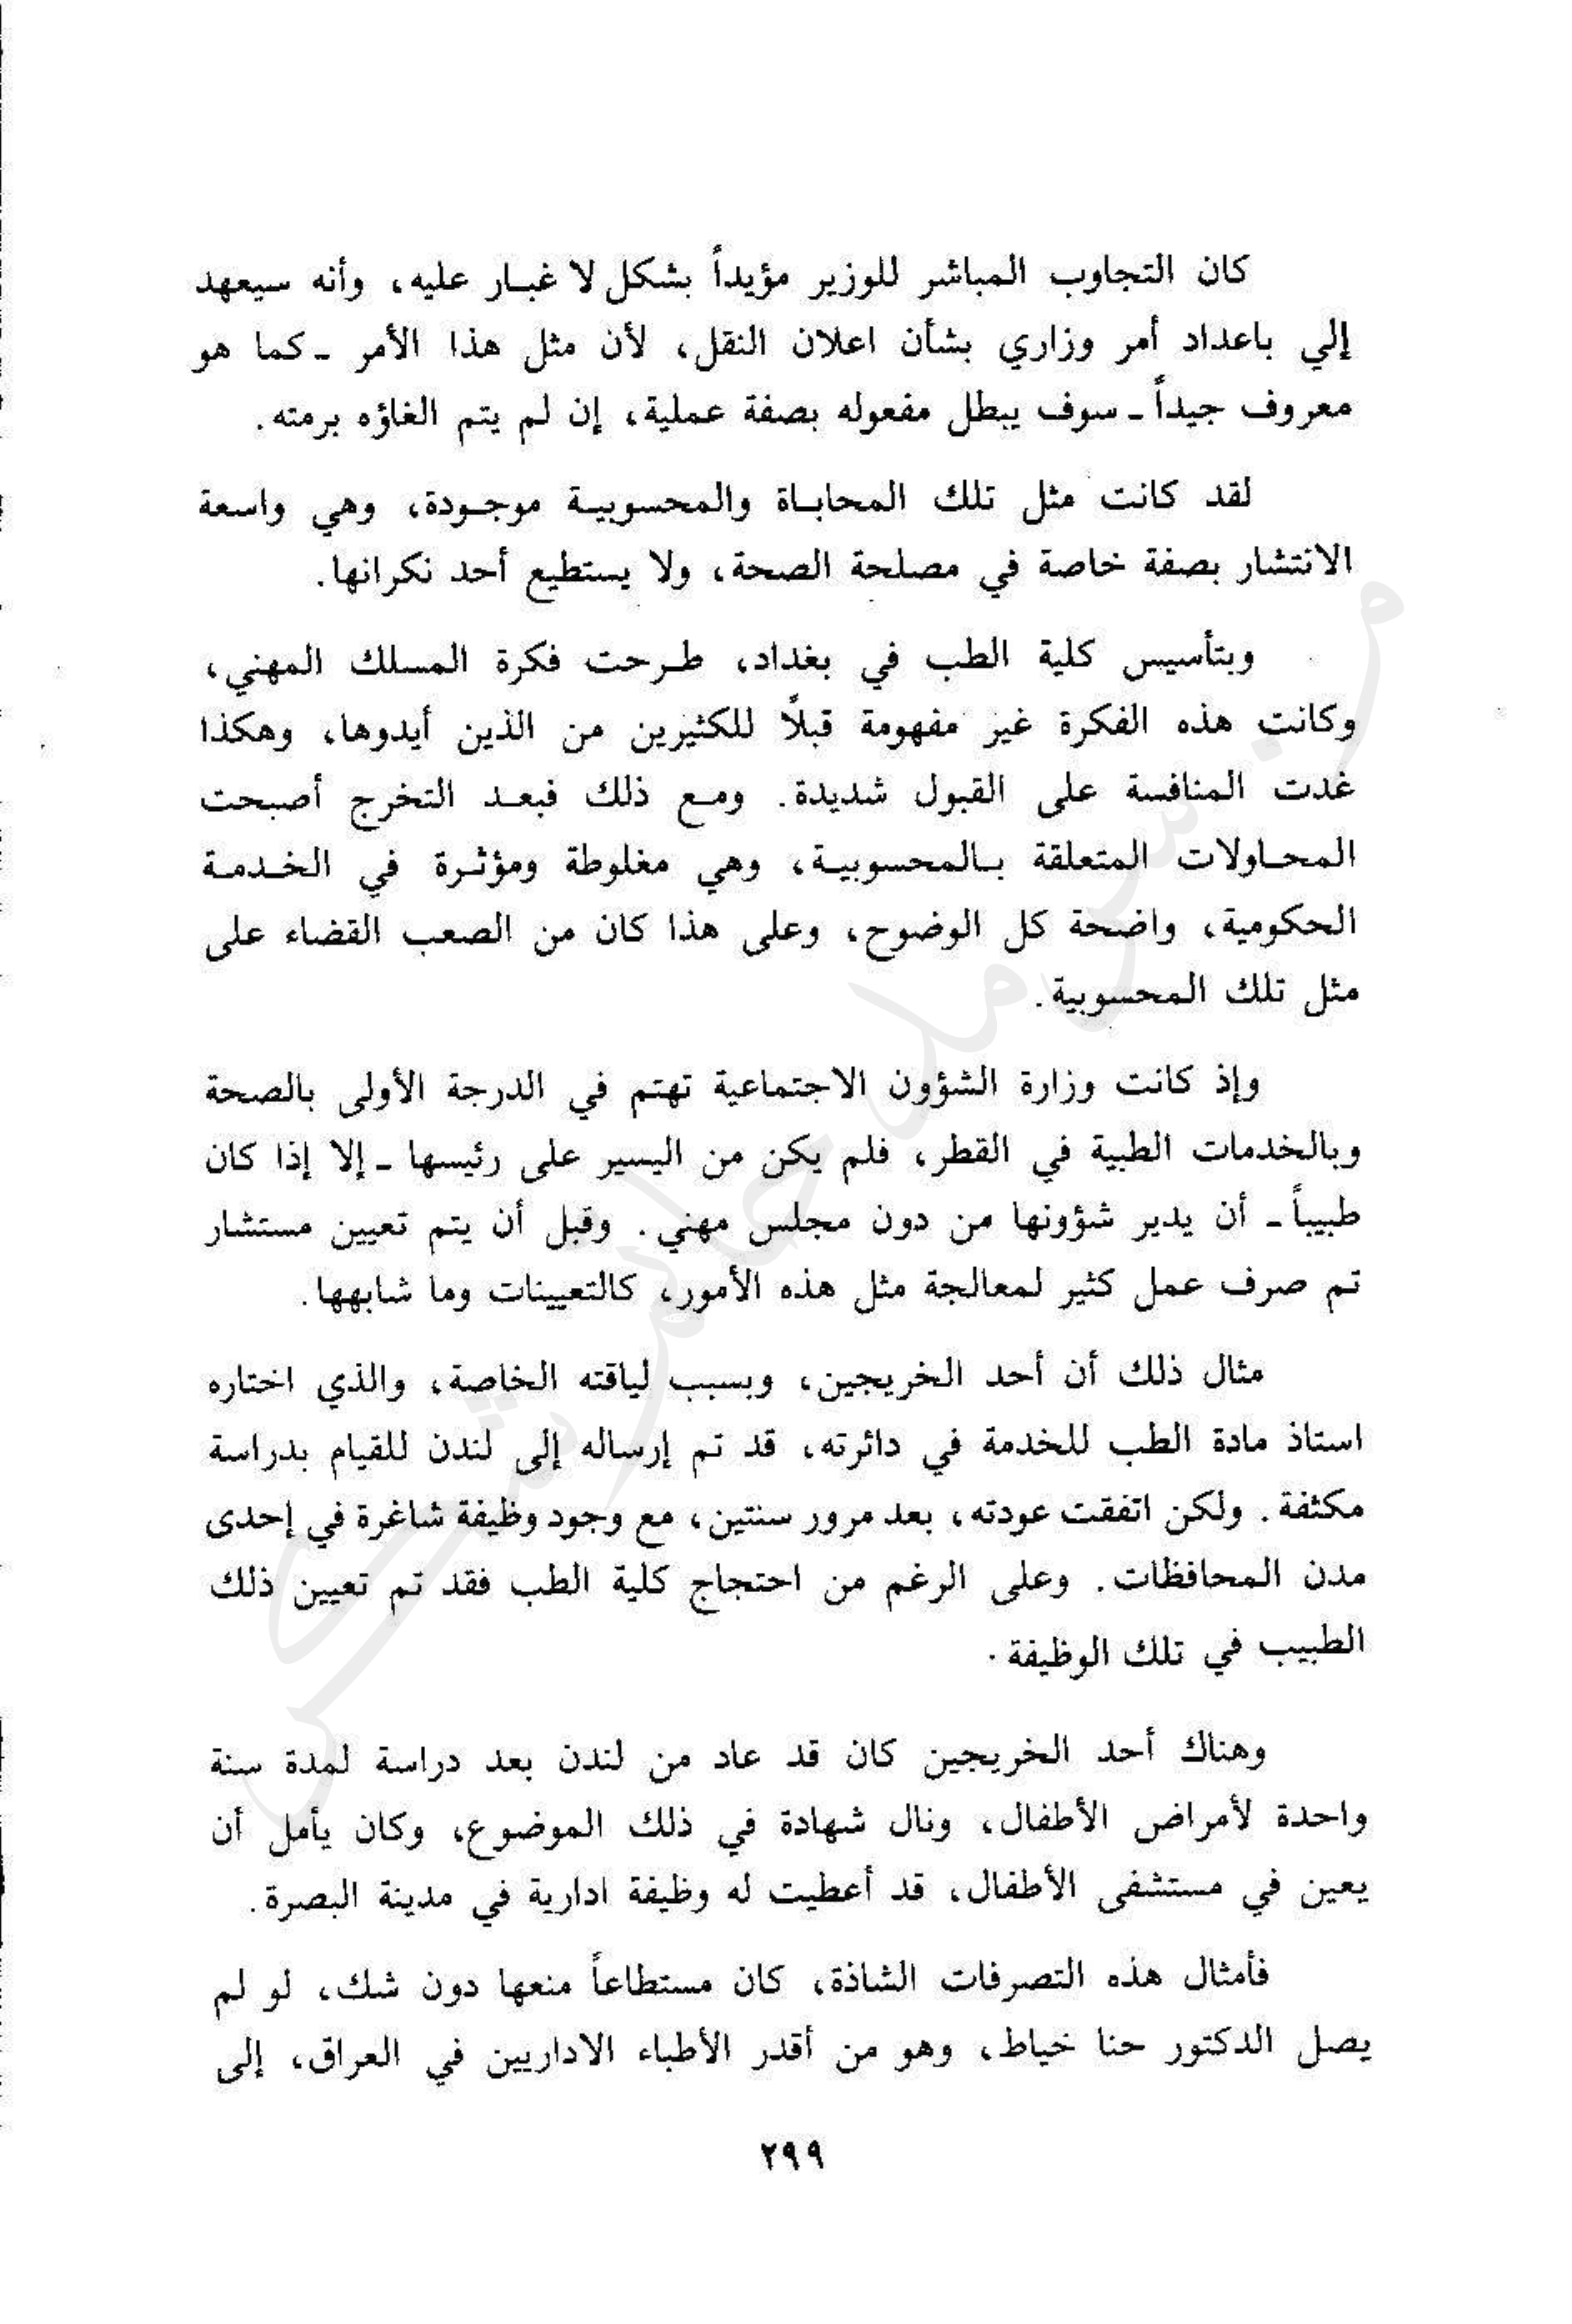 كان التجاوب المباشر للوزير مؤيداً بشكل لا غبار عليه، وأنه سيعهد
إلي باعداد أمر وزاري بشأن اعلان النقل، لأن مثل هذا الأمر ـ كما هو
معروف جيداً ـ سوف يبطل مفعوله بصفة عملية، إن لم يتم الغاؤه برمته.
لقد كانت مثل تلك المحاباة والمحسوبية موجودة، وهي واسعة
الانتشار بصفة خاصة في مصلحة الصحة، ولا يستطيع أحد نكرانها.
وبتأسيس كلية الطب في بغداد، طرحت فكرة المسلك المهني،
وكانت هذه الفكرة غير مفهومة قبلًا للكثيرين من الذين أيدوها، وهكذا
غدت المنافسة على القبول شديدة. ومع ذلك فبعد التخرج أصبحت
المحاولات المتعلقة بالمحسوبية، وهي مغلوطة ومؤثرة في الخدمة
الحكومية، واضحة كل الوضوح، وعلى هذا كان من الصعب القضاء على
مثل تلك المحسوبية.
وإذ كانت وزارة الشؤون الاجتماعية تهتم في الدرجة الأولى بالصحة
وبالخدمات الطبية في القطر، فلم يكن من اليسير على رئيسها ـ إلا إذا كان
طبيباً ـ أن يدير شؤونها من دون مجلس مهني. وقبل أن يتم تعيين مستشار
تم صرف عمل كثير لمعالجة مثل هذه الأمور، كالتعيينات وما شابهها.
مثال ذلك أن أحد الخريجين، وبسبب لياقته الخاصة، والذي اختاره
استاذ مادة الطب للخدمة في دائرته، قد تم إرساله إلى لندن للقيام بدراسة
مكثفة. ولكن اتفقت عودته، بعد مرور سنتين، مع وجود وظيفة شاغرة في إحدى
مدن المحافظات. وعلى الرغم من احتجاج كلية الطب فقد تم تعيين ذلك
الطبيب في تلك الوظيفة.
وهناك أحد الخريجين كان قد عاد من لندن بعد دراسة لمدة سنة
واحدة لأمراض الأطفال، ونال شهادة في ذلك الموضوع، وكان يأمل أن
يعين في مستشفى الأطفال، قد أعطيت له وظيفة ادارية في مدينة البصرة.
فأمثال هذه التصرفات الشاذة، كان مستطاعاً منعها دون شك، لو لم
يصل الدكتور حنا خياط، وهو من أقدر الأطباء الاداريين في العراق، إلى
٢٩٩